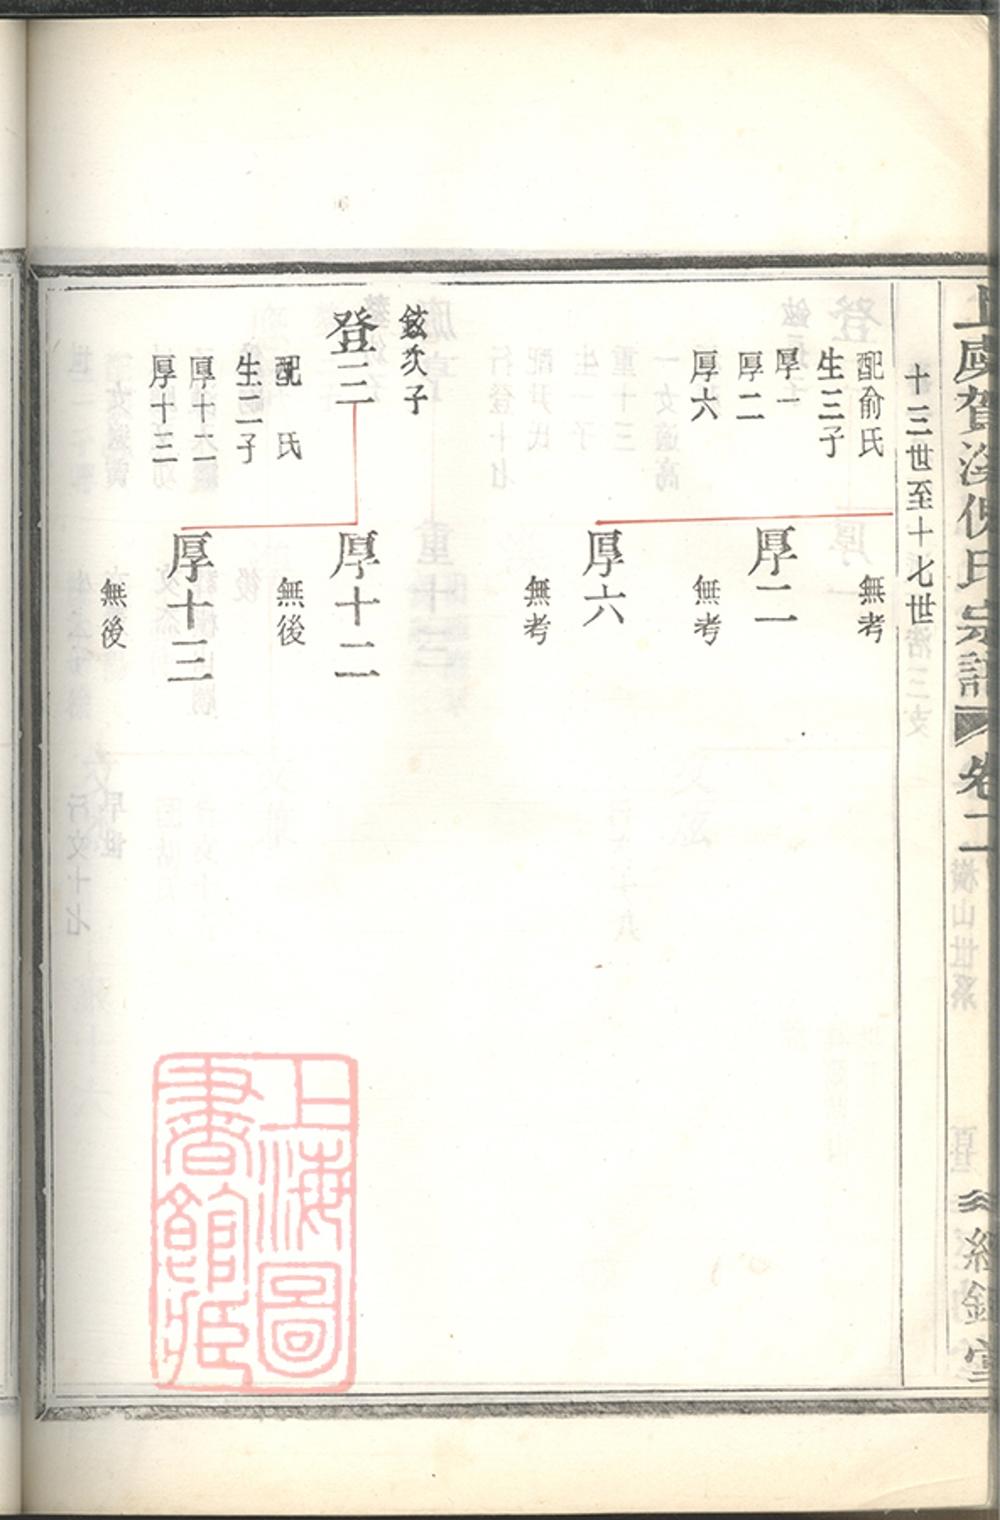 上虞賀溪倪氏宗譜
卷二
經鉏堂
十三世至十七世
配俞氏
生三子
厚一
厚二
厚六
無考
厚二
無考
厚六
無考
鉉次子
登三
配　氏
生二子
厚十二
厚十三
厚十二
無後
厚十三
無後
上海圖
書館藏